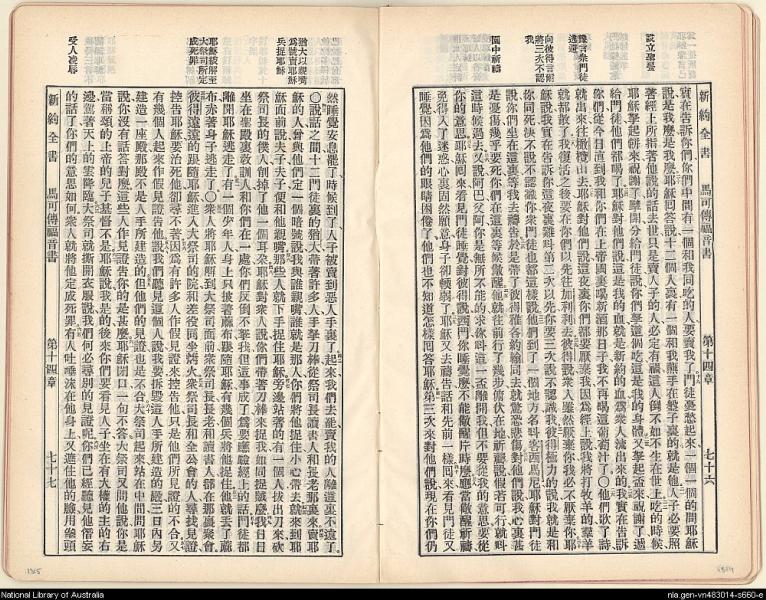 設立聖餐
豫言衆門徒逃避
向彼得言耐將三次不認我
園中祈禱
新約全書 馬可傳福音書 第十四章 七十六
實在告訴你們你們中間有一個和我同吃的人要賣我了門徒憂愁起來一個一個的問耶穌
說是我麼是我麼耶穌回答說十二個人裏有一個和我蘸手在盤子裏的就是他人子必要照
著經上所指著他說的話去世只是賣人子的人必定有禍這人倒不如不生在世上吃的時候
耶穌拏起餅來祝謝了擘開分給門徒說你們拏這個吃這是我的身體又拏起盃來祝謝了遞
給門徒他們都喝了耶穌對他們說這是我的血就是新約的血爲衆人流出來的我實在告訴
你們從今日直到我和你們在上帝國裏喝新酒那日子我不再喝這葡萄汁了〇他們歌了詩
就出來往橄欖山去耶穌對他們說這夜裏你們都要厭棄我因爲經上說我將打牧羊的羣羊
就都散了我復活之後要在你們以先往加利利去彼得說衆人雖然厭棄你我必不厭棄你耶
穌說我實在告訴你這夜裏雞叫第二次以先你要三次說不認識我彼得極力的說我就是和
你同死決不說不認識你衆門徒也都這樣說他們到了一個地方名叫客西馬尼耶穌對門徒
說你們坐在這裏等我去禱告於是帶了彼得雅各約翰同去就驚恐悲傷對他們說我心裏甚
是憂傷幾乎要死你們在這裏等候儆醒他就往前行了幾步俯伏在地祈禱說假若可行就叫
這時候過去又說阿巴父阿你是無所不能的求你叫這一盃離開我但不要從我的意思要從
你的意思耶穌回來看見門徒睡覺對彼得說西門你睡覺麼不能儆醒片時麼應當儆醒祈禱
免得入了迷惑心裏固然願意身子卻輭弱了耶穌又去禱告話和先前一樣回來看見門徒又
睡覺因爲他們的眼睛困倦了他們也不知道怎樣回答耶穌第三次來對他們說現在你們仍
猶大以親嘴爲號賣耶穌
兵捉耶穌
耶穌被解至大祭司所定成死罪
受人凌辱
新約全書 馬可傳福音書 第十四章 七十七
然睡覺安息罷了時候到了人子被賣到惡人手裏了起來我們去罷賣我的人離這裏不遠了
〇說話之間十二門徒裏的猶大帶著許多人手拏刀棒從祭司長讀書人和長老那裏來賣耶
穌的人曾與他們定一個暗號說我與誰親嘴誰就是那人你們將他捉住小心帶去就來到耶
穌面前說夫子夫子便和他親嘴那些人就下手捉住耶穌旁邊站著的有一個人拔出刀來砍
祭司長的僕人削掉了他一個耳朶耶穌對衆人說你們帶著刀棒來捉我如同捉賊麼我日日
坐在聖殿裏教訓人和你們在一處你們反倒不拏我但這事成了爲要應驗經上的話門徒都
離開耶穌逃走了有一個少年人身上只披著麻布跟隨耶穌有幾個兵將他捉住他就丟了麻
布赤著身子逃走了〇衆人將耶穌解到大祭司面前衆祭司長長老和讀書人都在那裏聚會
彼得遠遠的跟隨耶穌進入大祭司的院和差役同坐烤火衆祭司長和全公會的人尋找見證
控告耶穌要治死他卻尋不著因爲有許多人作假見證來控告他只是他們所見證的不合又
有幾個人起來作假見證告他說我們聽見這個人說我要拆毀這人手所建造的殿三日內另
建造一座殿那殿不是人手所建造的但他們的見證也是不合大祭司起來站在中間問耶穌
說你沒有話答對麼這些人作見證告你的是甚麼耶穌閉口一句不答大祭司又問他說你是
當稱頌的上帝的兒子基督不是耶穌說我是的後來你們要看見人子坐在有大權的主的右
邊駕著天上的雲降臨大祭司就撕開衣服說我們何必尋別的見證呢你們已經聽見他僭妄
的話了你們的意思如何衆人就將他定成死罪有人吐唾沫在他身上又遮住他的臉用拳頭
National Library of Australia
nla.gen-vn483014-s660-e